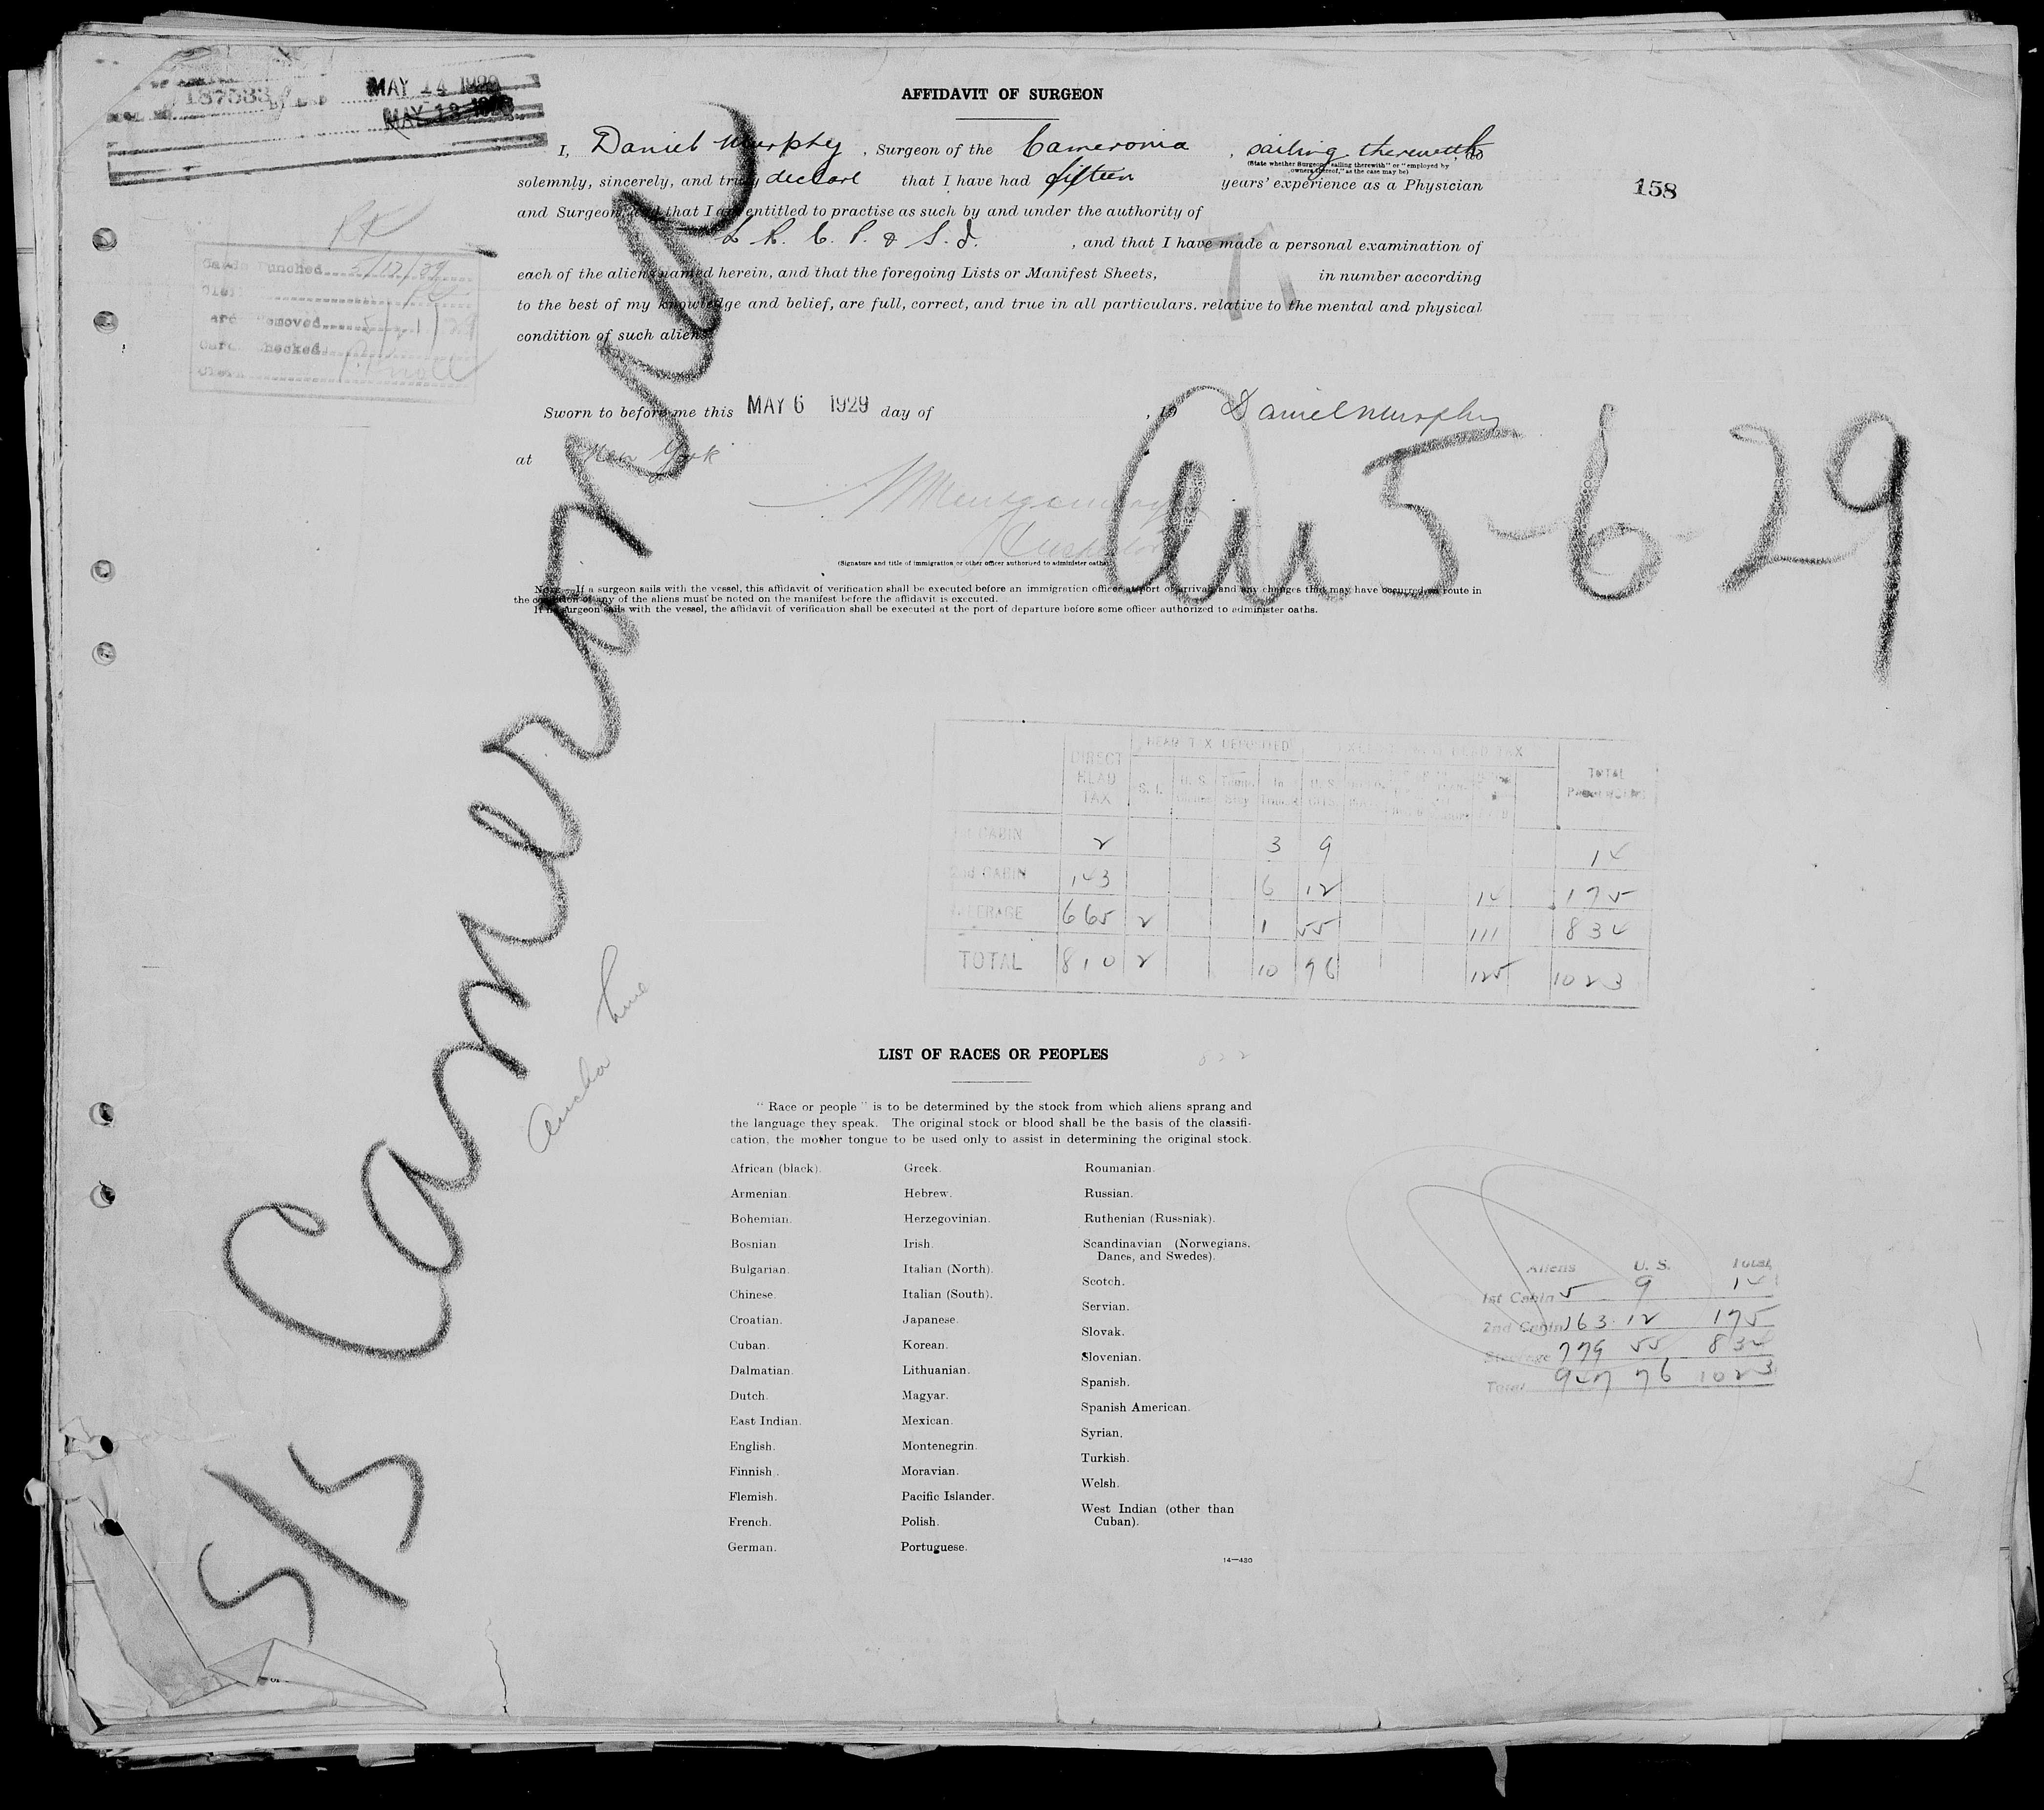 187583
MAY 14 1929
MAY 13 1929
AFFIDAVIT OF SURGEON
I, Daniel Murphy, Surgeon of the Cameronia, sailing therewith, do
(State whether Surgeon "sailing therewith" or "employed by
owners thereof," as the case may be)
solemnly, sincerely, and truly declare that I have had fifteen years' experience as a Physician
158
and Surgeon and that I am entitled to practise as such by and under the authority of
L R. C. P. & S. I. , and that I have made a personal examination of
each of the aliens named herein, and that the foregoing Lists or Manifest Sheets, in number according
to the best of my knowledge and belief, are full, correct, and true in all particulars. relative to the mental and physical
condition of such aliens.
Cards Punched 5/12/29
Clerk
Card Removed
Cards Checked
Clerk
Sworn to before me this MAY 6 1929 day of , 19
Daniel Murphy
at New York
Montgomery
Inspector
(Signature and title of immigration or other officer authorized to administer oaths)
Arr 5-6-29
Note.—If a surgeon sails with the vessel, this affidavit of verification shall be executed before an immigration officer at port of arrival, and any changes that may have occurred en route in
the condition of any of the aliens must be noted on the manifest before the affidavit is executed.
If no surgeon sails with the vessel, the affidavit of verification shall be executed at the port of departure before some officer authorized to administer oaths.
S/S Cameronia
Anchor Line
HEAD TAX DEPOSITED
DIRECT HEAD TAX S. I. In Transit U. S. TOTAL
1st CABIN 2 3 9 14
2nd CABIN 143 6 12 14 175
STEERAGE 665 2 1 55 111 834
TOTAL 810 2 10 76 125 1023
LIST OF RACES OR PEOPLES
"Race or people" is to be determined by the stock from which aliens sprang and
the language they speak. The original stock or blood shall be the basis of the classifi-
cation, the mother tongue to be used only to assist in determining the original stock.
African (black).
Armenian.
Bohemian.
Bosnian.
Bulgarian.
Chinese.
Croatian.
Cuban.
Dalmatian.
Dutch.
East Indian.
English.
Finnish.
Flemish.
French.
German.
Greek.
Hebrew.
Herzegovinian.
Irish.
Italian (North).
Italian (South).
Japanese.
Korean.
Lithuanian.
Magyar.
Mexican.
Montenegrin.
Moravian.
Pacific Islander.
Polish.
Portuguese.
Roumanian.
Russian.
Ruthenian (Russniak).
Scandinavian (Norwegians,
Danes, and Swedes).
Scotch.
Servian.
Slovak.
Slovenian.
Spanish.
Spanish American.
Syrian.
Turkish.
Welsh.
West Indian (other than
Cuban).
14—430
Aliens U. S. Total
1st Cabin 5 9 14
2nd Cabin 163 12 175
Steerage 779 55 834
Total 947 76 1023